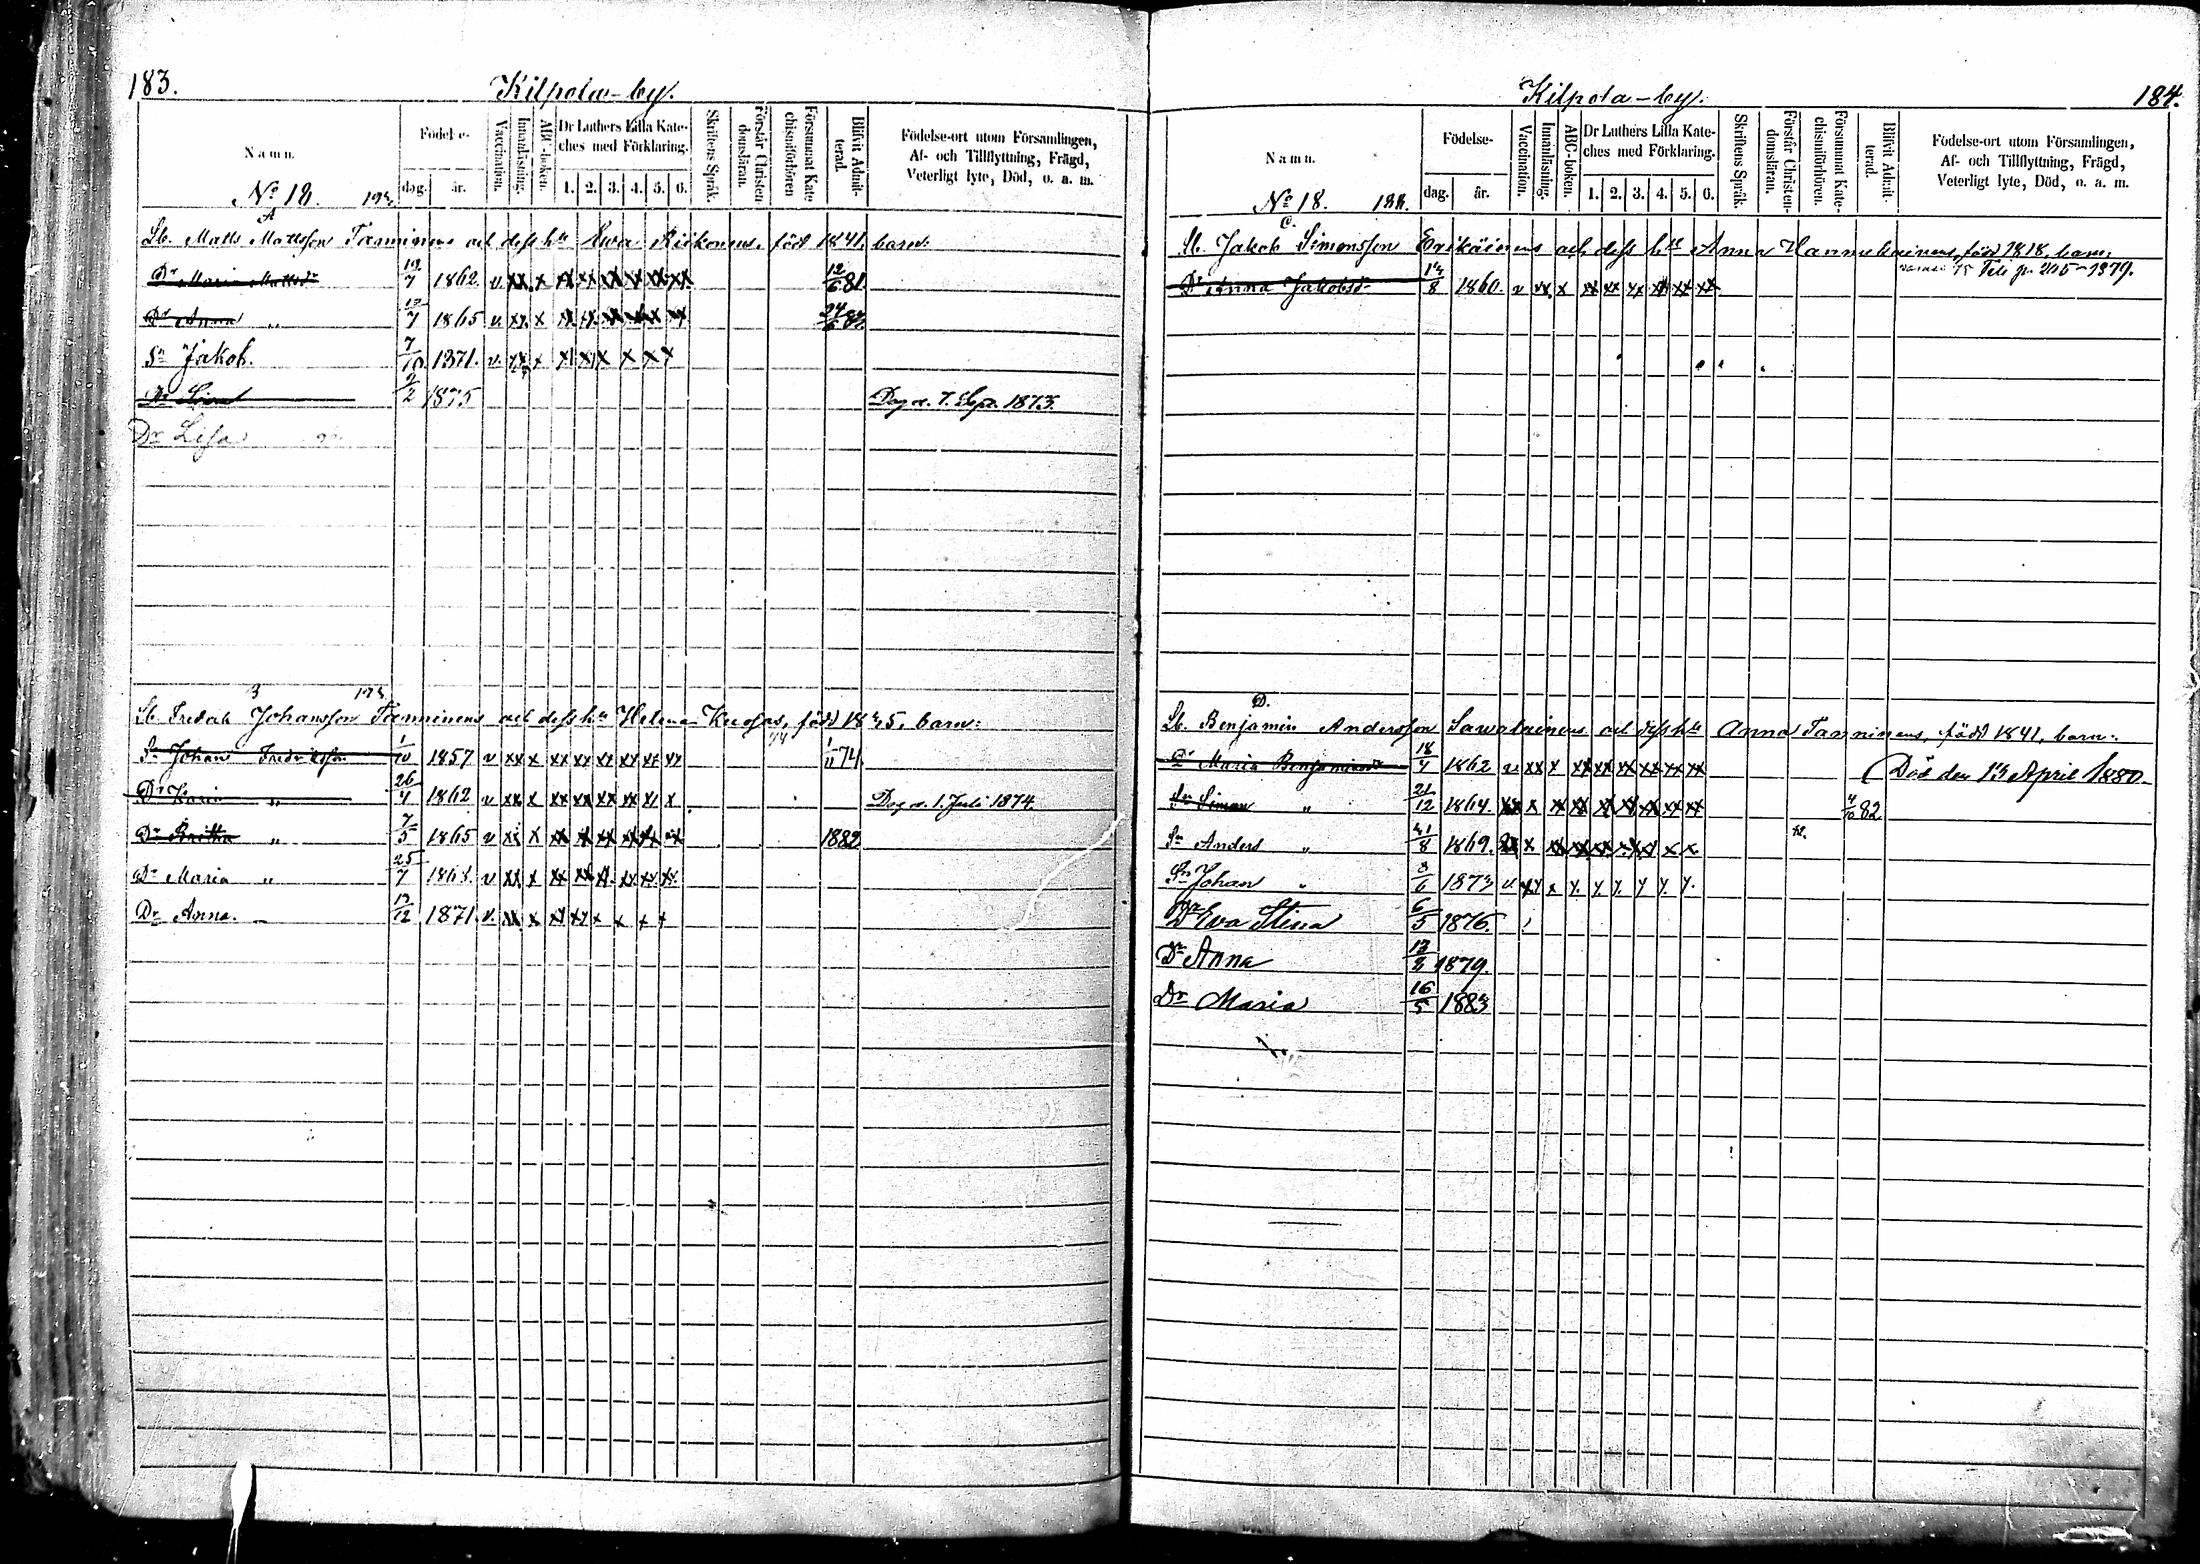 183.
Kilpola-by.
Namn.
Födelse-
dag.
år.
Vaccination.
Innanläsning.
ABC-boken.
Dr Luthers Lilla Kate-
ches med Förklaring.
1. 2. 3. 4. 5. 6.
Skriftens Språk.
Förstår Christen-
domsläran.
Försummat Kate-
chismiförhören
Blifvit Admit-
terad.
Födelse-ort utom Församlingen,
Af- och Tillflyttning, Frägd,
Veterligt lyte, Död, o. a. m.
No 18.
A
Lb. Matts Mattsson Tanninens och dess hu Ewa Riikonens, född 1841, barn:
Dr Maria Mattsdr 7 1862. v. xx x xx xx xx xx xx xx 12/6 81.
Dr Anna „ 7 1865 v. xx. x 24/6
Sn Jakob. 7/10 1871. v. xx x
Dr 2/2 1875 Dog d. 7. Sept. 1875.
Dr Lisa
Lb. Fredrik Johansson Tanninens och dess hu Helena Kuosas, född barn:
Sn Johan Fredriksson 1/10 1857 v xx xx xx xx xx xx xx xx 1/11 74.
Dr Karin „ 26/4 1862 v xx x xx xx xx xx x Dog d. 1. Juli 1874.
Dr Britha „ 7/5 1865 v xx x xx xx xx xx xx 1882
Dr Maria „ 25/7 v xx x xx xx xx xx xx xx.
Dr Anna. 12 1871. v. xx x xx xx x x x x
184.
Kilpola-by.
Namn.
Födelse-
dag.
år.
Vaccination.
Innanläsning.
ABC-boken.
Dr Luthers Lilla Kate-
ches med Förklaring.
1. 2. 3. 4. 5. 6.
Skriftens Språk.
Förstår Christen-
domsläran.
Försummat Kate-
chismiförhören.
Blifvit Admit-
terad.
Födelse-ort utom Församlingen,
Af- och Tillflyttning, Frägd,
Veterligt lyte, Död, o. a. m.
No 18.
C.
Lb. Jakob Simonsson Erikäinens och dess hu Anna Hannukainens, född 1818, barn:
Dr Anna Jakobsdr 8 1860. v xx. x xx xx xx xx xx xx 1879.
D.
Lb. Benjamin Andersson Sawolainens och dess hu Anna Tanninens, född 1841, barn:
Dr Maria Benjaminsdr 18 1862 v. xx x xx xx xx xx xx xx Död den 13 April 1880.
Sn Simon „ 21/12 1864. xx x xx xx xx xx xx xx 4/10 82
Sn Anders „ 8 1869. x x x
Sn Johan „ 3/6 1873 v xx x x. x. x. x x. x.
Dr Eva Stina 6/5 1876.
Dr Anna 13/2 1879.
Dr Maria 16/5 1883